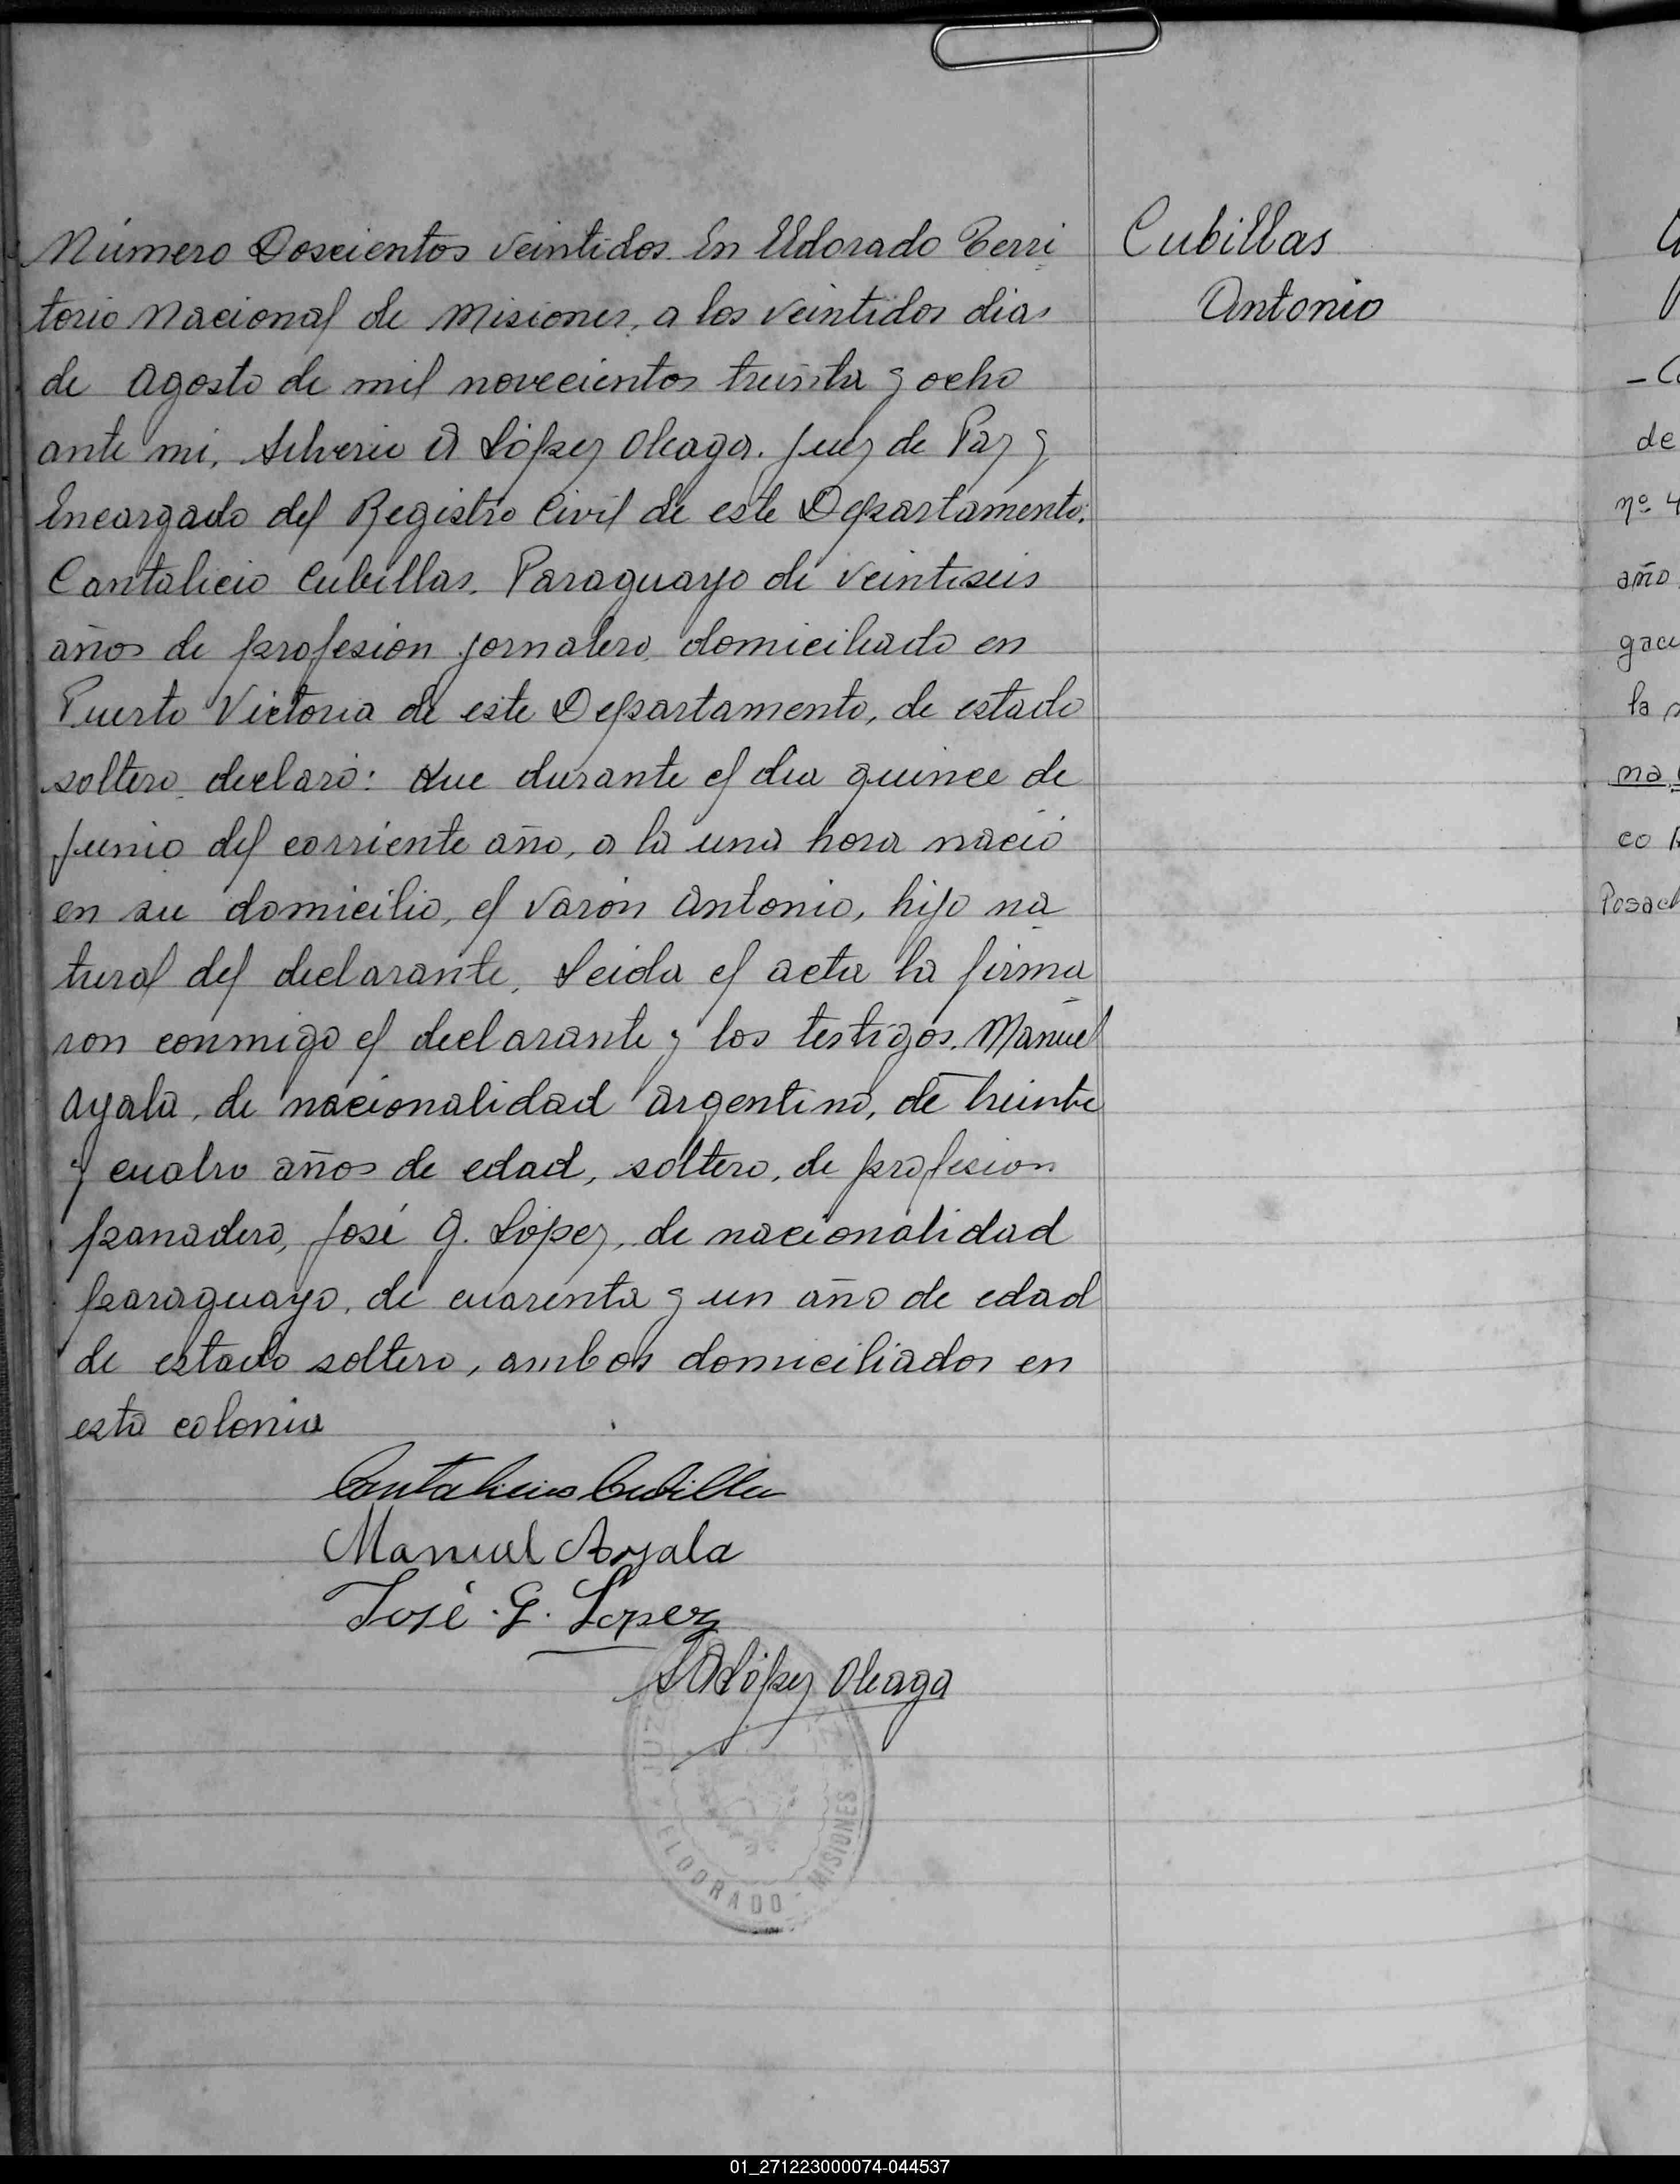 Número Doscientos veintidos. En Eldorado Terri
torio Nacional de Misiones, a los veintidos dias
de Agosto de mil novecientos treinta y ocho
ante mi, Silverio A López Oleaga. Juez de Paz y
Encargado del Registro Civil de este Departamento.
Cantalicio Cubillas. Paraguayo de veintiseis
años de profesion jornalero, domiciliado en
Puerto Victoria de este Departamento, de estado
soltero, declaró: Que durante el dia quince de
Junio del corriente año, a la una hora nació
en su domicilio, el varón Antonio, hijo na
tural del declarante, Leida el acta la firma
ron conmigo el declarante y los testigos. Manuel
Ayala, de nacionalidad argentino, de treinta
y cuatro años de edad, soltero, de profesion
panadero, José G. López, de nacionalidad
paraguayo, de cuarenta y un año de edad
de estado soltero, ambos domiciliados en
esta colonia
Cantalicio Cubilla
Manuel Ayala
José G. Lopez
S A López Oleaga
ELDORADO - MISIONES
Cubillas
Antonio
de
nº 4
año
la
01_271223000074-044537